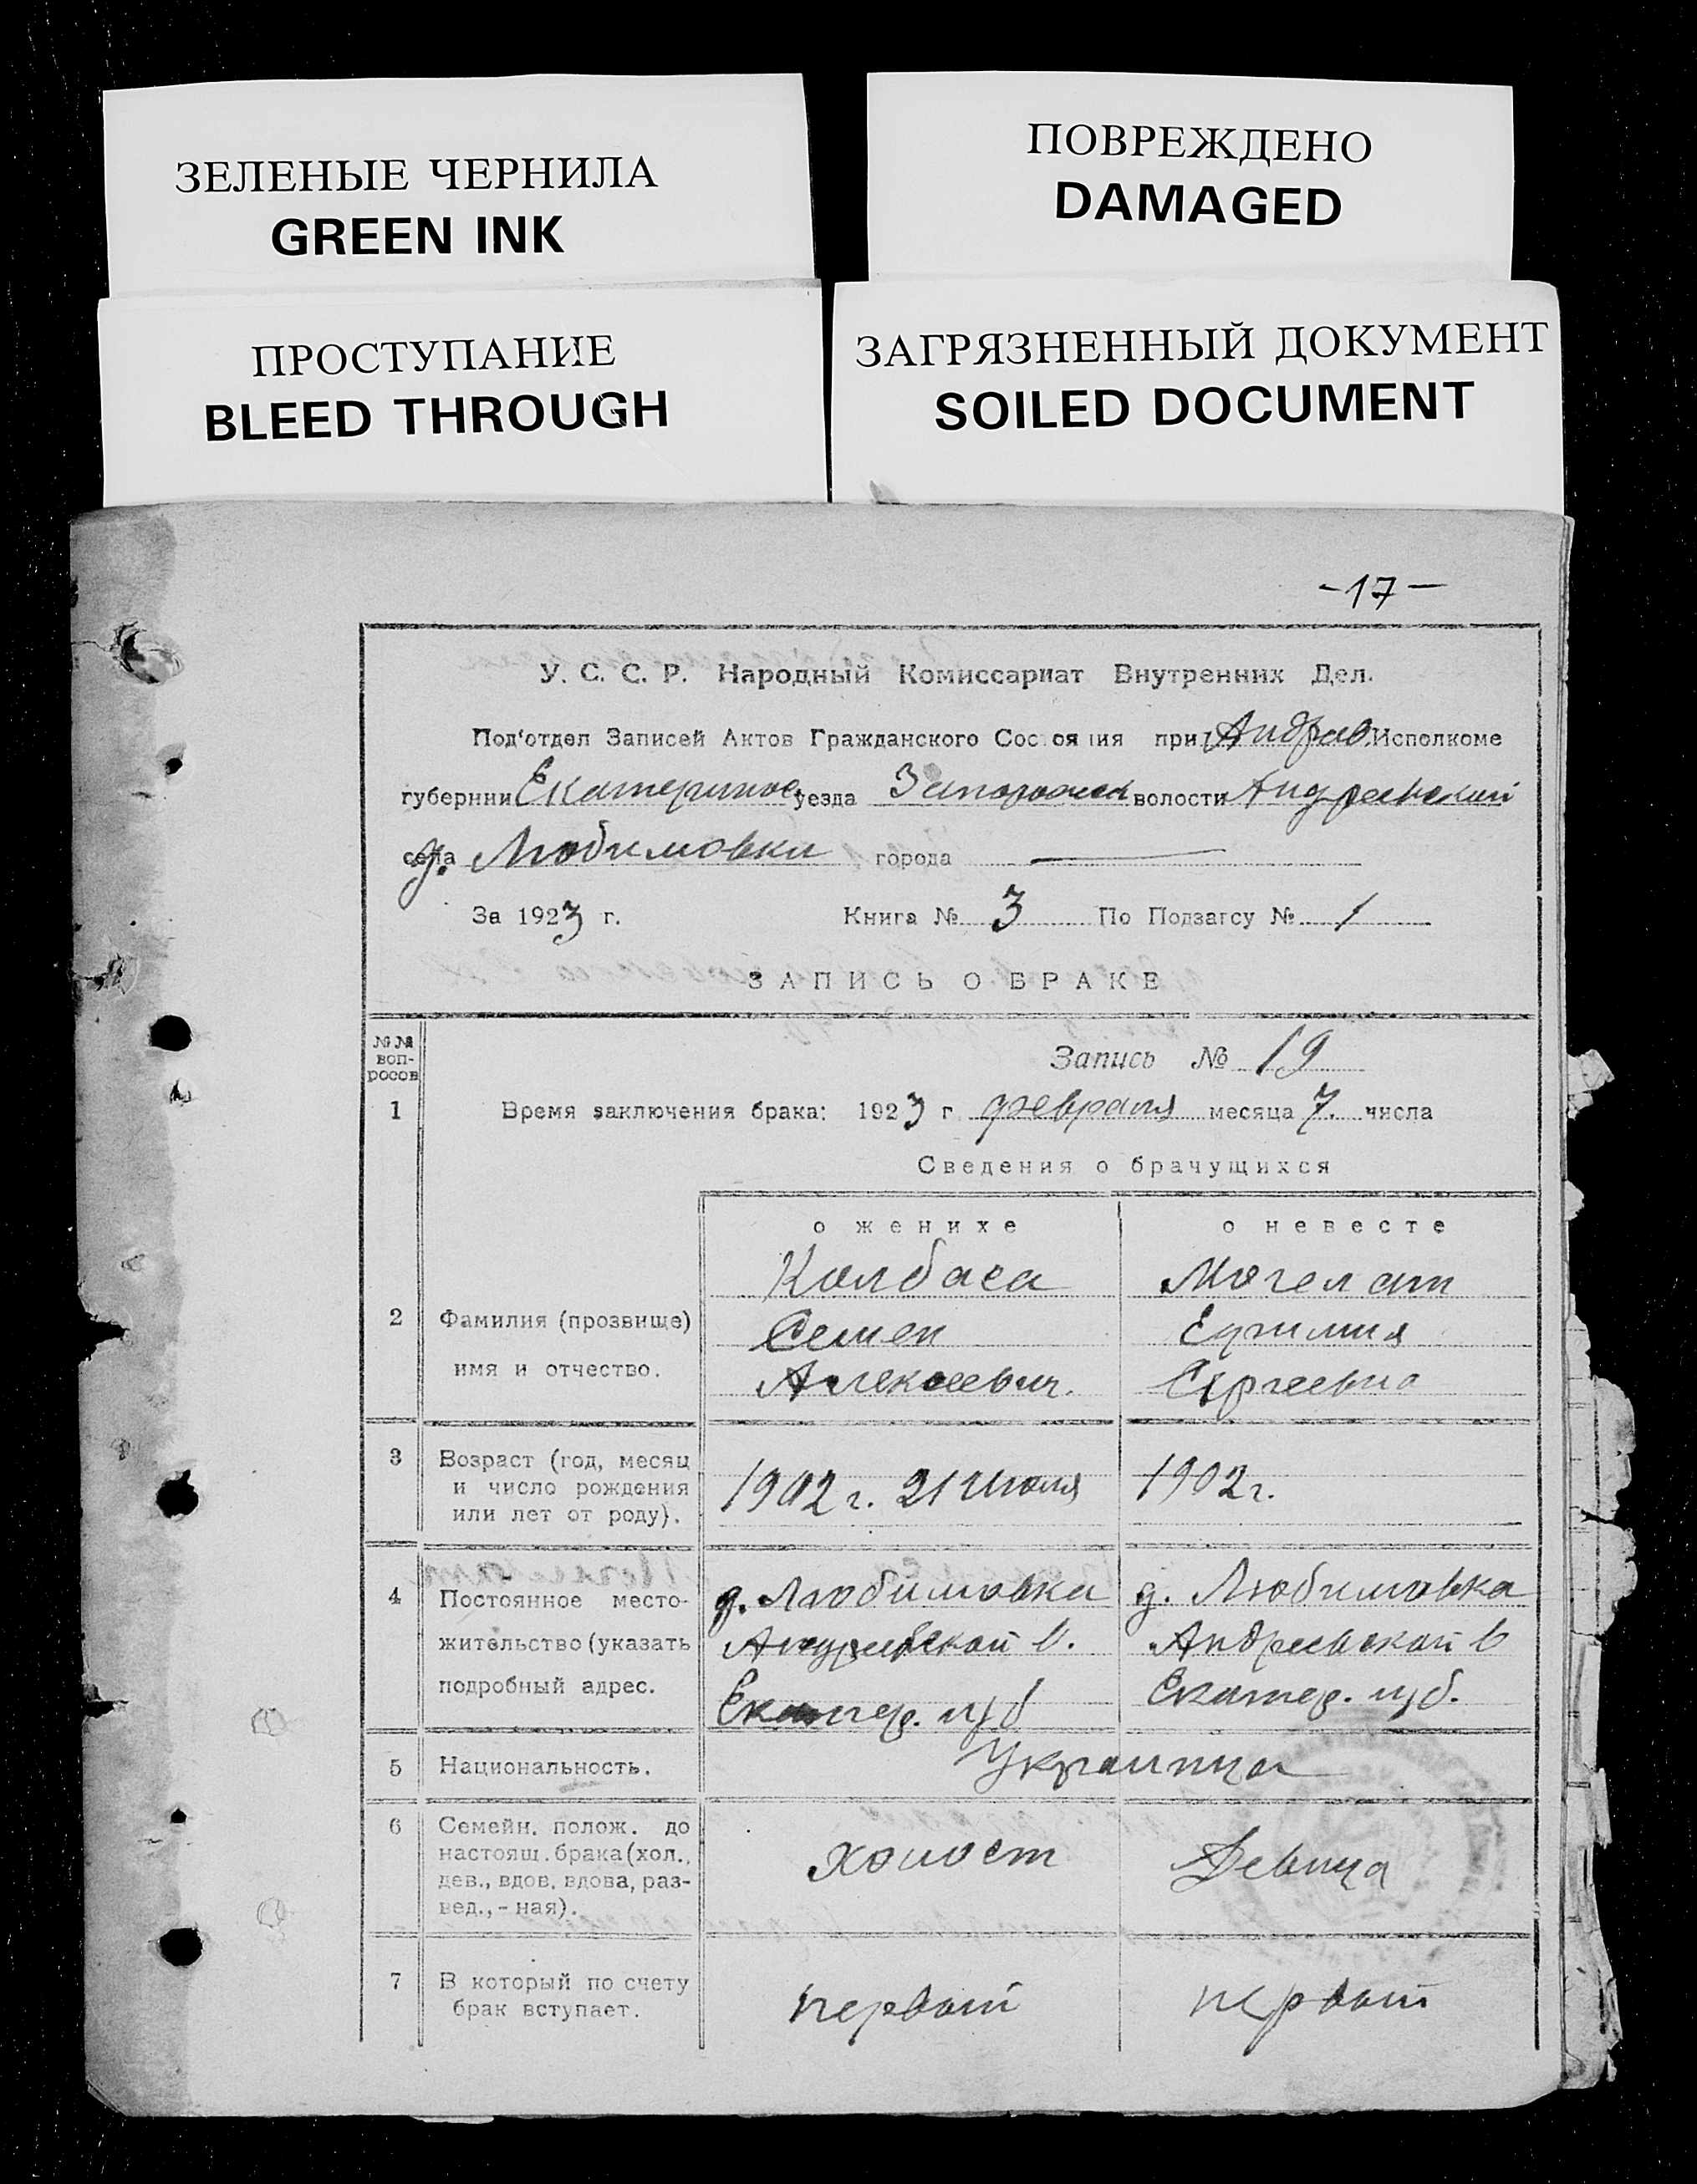 ЗЕЛЕНЫЕ ЧЕРНИЛА
GREEN INK
ПОВРЕЖДЕНО
DAMAGED
ПРОСТУПАНИЕ
BLEED THROUGH
ЗАГРЯЗНЕННЫЙ ДОКУМЕНТ
SOILED DOCUMENT
-17-
У. С. С. Р. Народный Комиссариат Внутренних Дел.
Под'отдел Записей Актов Гражданского Состояния при Андреев. Исполкоме
губернии Екатеринос. уезда Запорожск волости Андреевской
села д. Любимовки города —
За 1923 г. Книга № 3 По Подзагсу № 1
ЗАПИСЬ О БРАКЕ
№№ воп-росов
Запись № 19
1 Время заключения брака: 1923 г. февраля месяца 7. числа
Сведения о брачущихся
о женихе о невесте
Колбаса Могелат
2 Фамилия (прозвище) Семен Ефимия
имя и отчество. Алексеевич. Сергеевна
3 Возраст (год, месяц
и число рождения 1902 г. 21 Июля 1902 г.
или лет от роду).
д. Любимовка д. Любимовка
4 Постоянное место-
жительство (указать Андреевской в. Андреевской в
подробный адрес. Екатер. губ Екатер. губ.
5 Национальность. Украинца
6 Семейн. полож. до
настоящ. брака (хол.,
дев., вдов, вдова, раз- холост Девица
вед., - ная).
7 В который по счету
брак вступает. первый первый